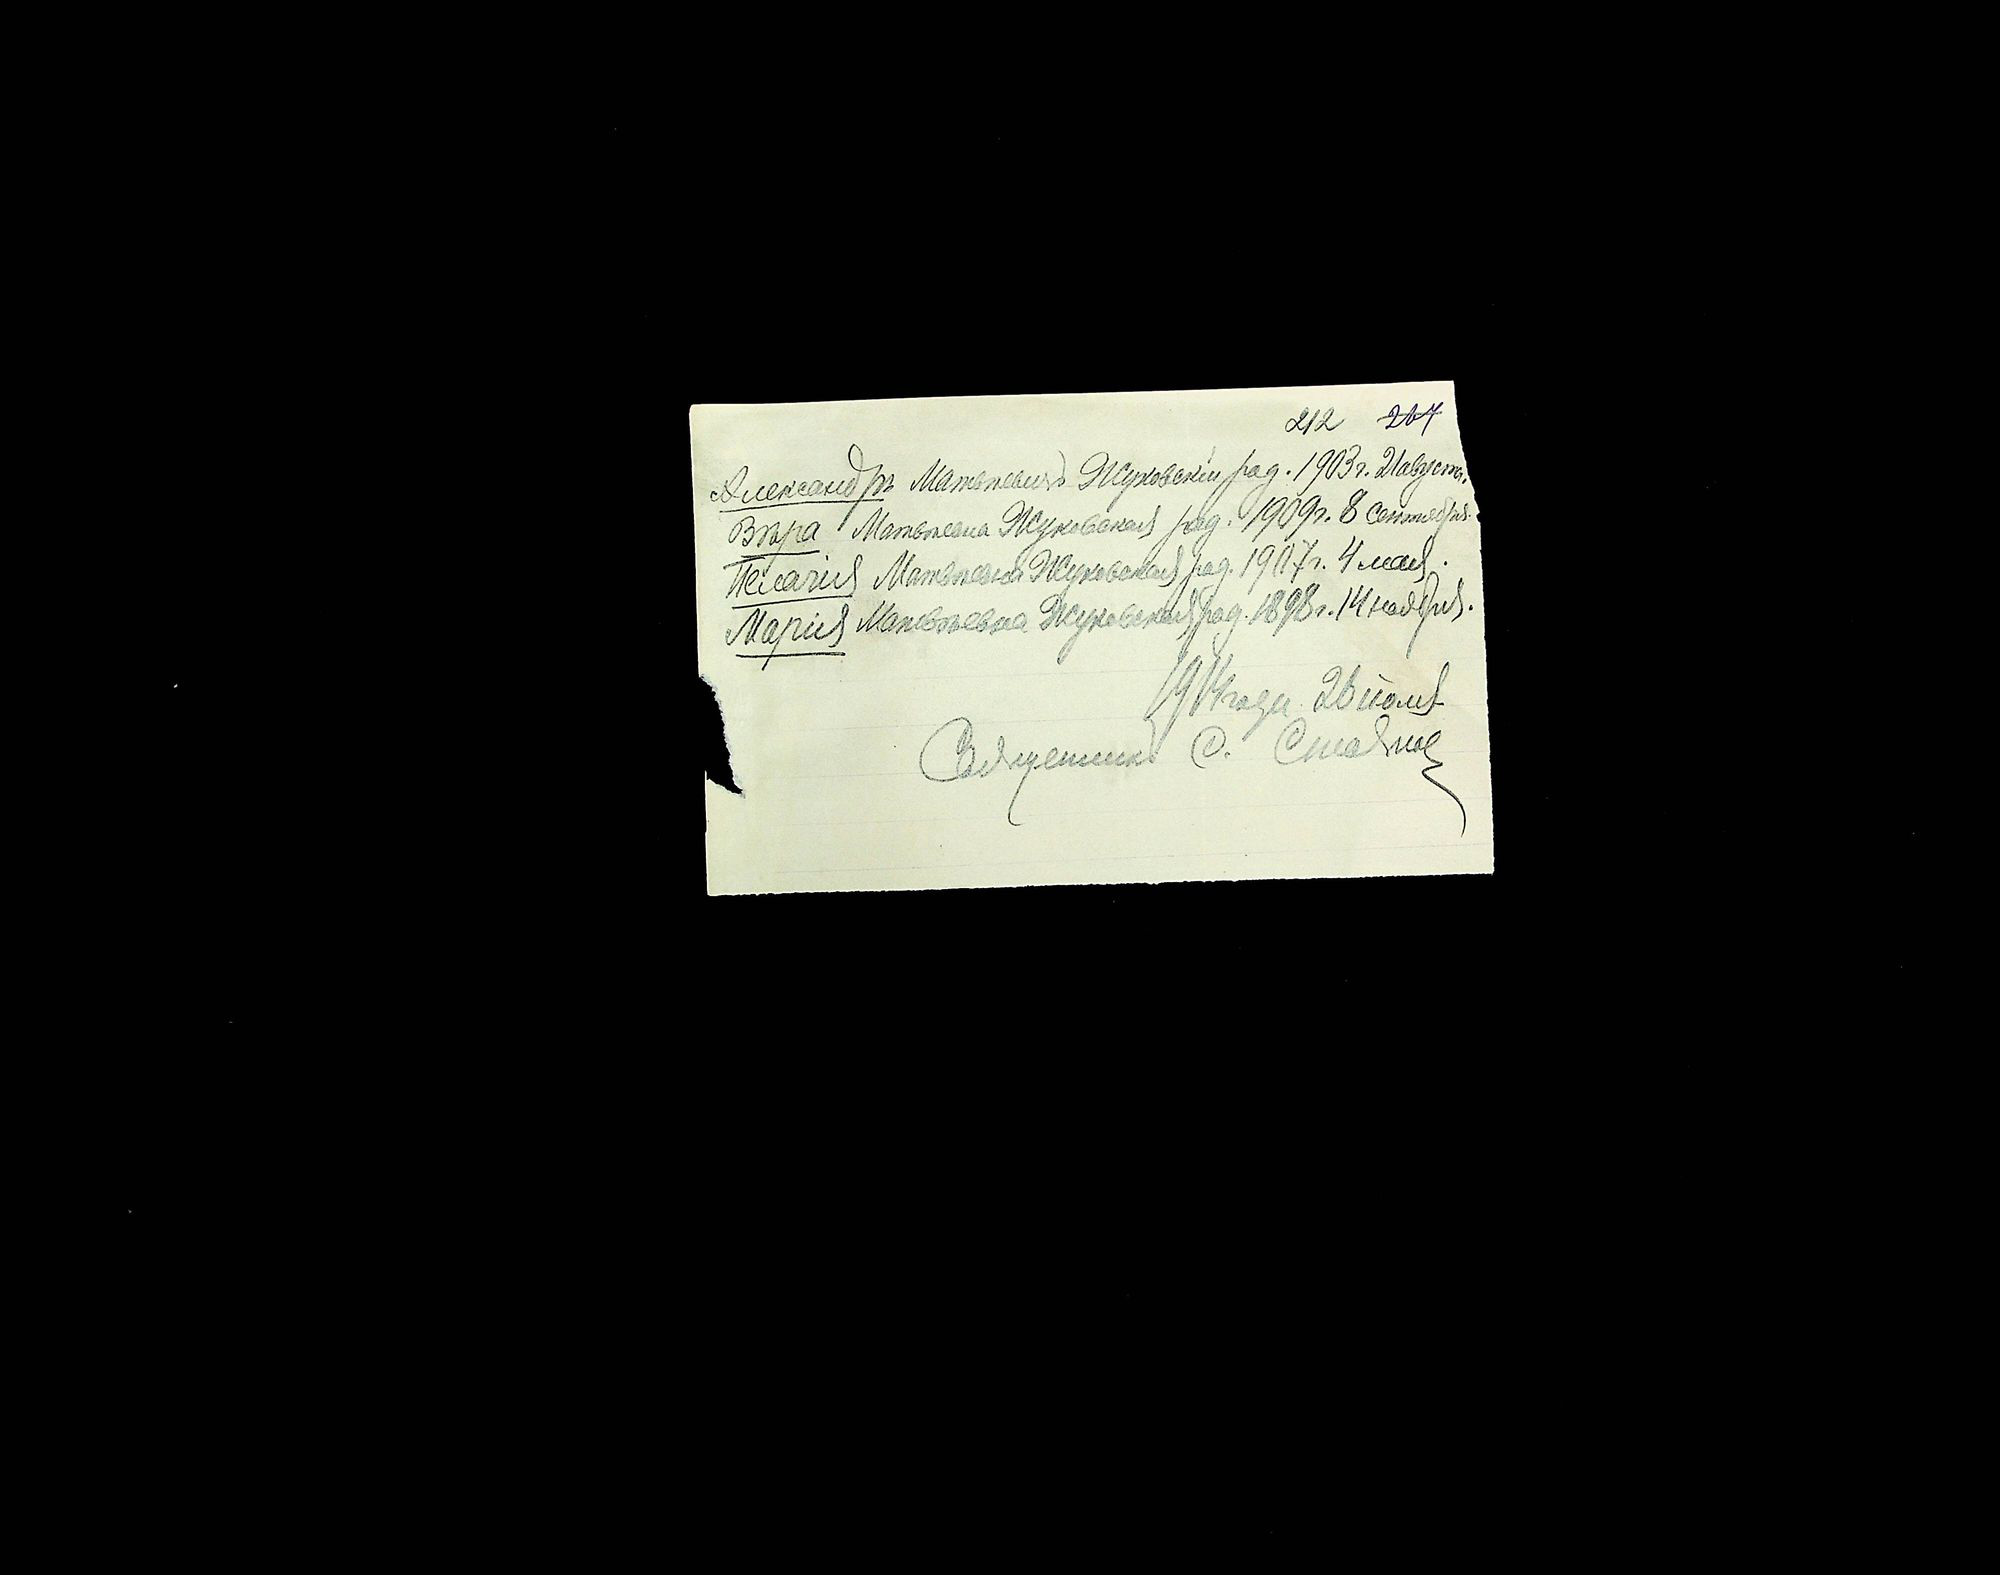 212 207
Александръ Матвѣевичъ Жуковскій род. 1903 г. 21 августа.
Вѣра Матвѣевна Жуковская род. 1909 г. 8 сентября.
Пелагія Матвѣевна Жуковская род. 1907 г. 4 мая.
Марія Матвѣевна Жуковская род. 1898 г. 14 ноября.
1914 года 26 іюля
Священникъ С.